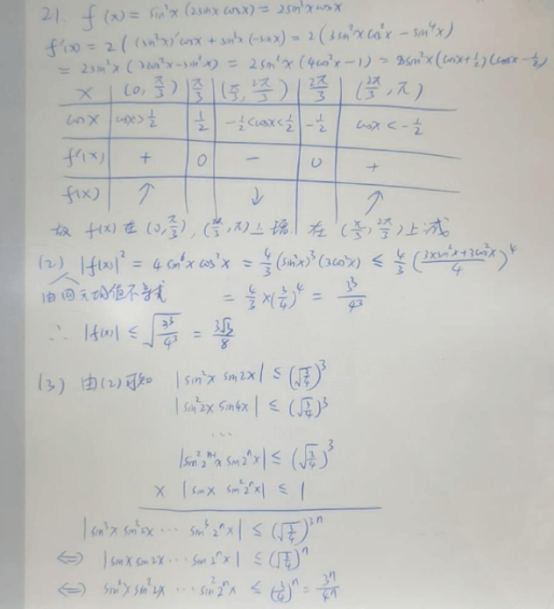 21. f(x) = sin²x (2sinx cosx) = 2sin³x cosx
f'(x) = 2 ( (sin³x)'cosx + sin³x (-sinx) = 2 ( 3sin²x cos²x - sin⁴x)
= 2sin²x ( 3cos²x - sin²x) = 2sin²x (4cos²x - 1) = 8sin²x (cosx + 1/2) (cosx - 1/2)
x (0, π/3) π/3 (π/3, 2π/3) 2π/3 (2π/3, π)
cosx cosx > 1/2 1/2 -1/2 < cosx < 1/2 -1/2 cosx < -1/2
f'(x) + 0 - 0 +
f(x) ↑ ↓ ↑
故 f(x) 在 (0, π/3), (2π/3, π) 上增 在 (π/3, 2π/3) 上减
(2) |f(x)|² = 4 sin⁶x cos²x = 4/3 (sin²x)³ (3cos²x) ≤ 4/3 ( (3×sin²x + 3cos²x)/4 )⁴
由四元均值不等式 = 4/3 × (3/4)⁴ = 3³/4³
∴ |f(x)| ≤ √(3³/4³) = 3√3/8
(3) 由(2)可知 |sin²x sin2x| ≤ (√(3/4))³
|sin²2x sin4x| ≤ (√(3/4))³
...
|sin²2ⁿ⁻¹x sin2ⁿx| ≤ (√(3/4))³
× |sinx sin²2ⁿx| ≤ 1
|sin³x sin³2x ... sin³2ⁿx| ≤ (√(3/4))³ⁿ
⇔ |sinx sin2x ... sin2ⁿx| ≤ (√(3/4))ⁿ
⇔ sin²x sin²2x ... sin²2ⁿx ≤ (3/4)ⁿ = 3ⁿ/4ⁿ